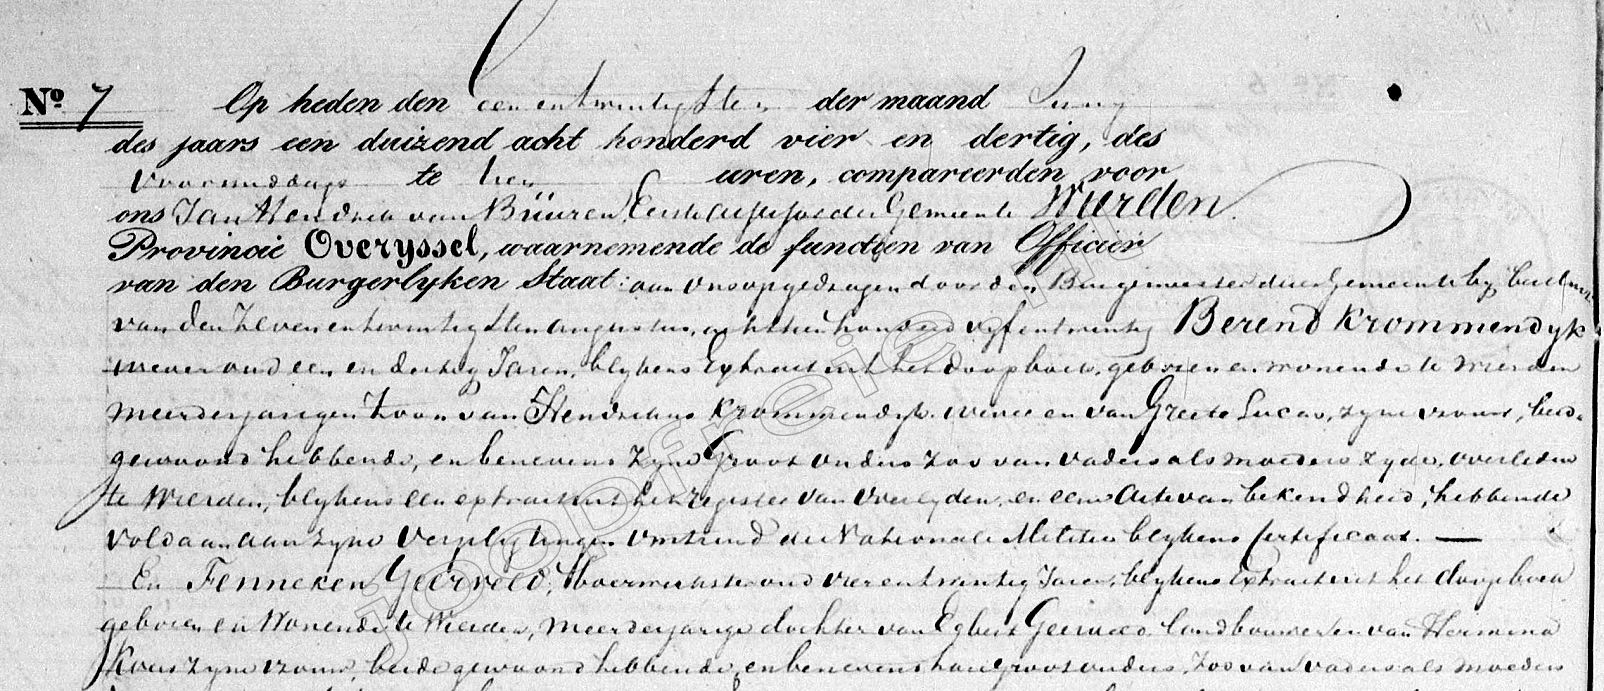 No. 7 Op heden den een entwintigsten der maand Juny
des jaars een duizend acht honderd vier en dertig, des
voormiddags te tien uren, compareerden voor
ons Jan Hendrik van Büüren, Eerste assessor der Gemeente Wierden.
Provincie Overyssel, waarnemende de functien van Officier
van den Burgerlyken Staat: aan ons opgedragen door den Burgemeester dier Gemeente by besluit
van den zeven entwintigsten Augustus, achttien honderd vyf entwintig Berend Krommendyk
wever oud een en dertig Jaren, blykens Extract uit het doopboek, geboren en wonende te Wierden
meerderjarigen Zoon van Hendrikus Krommendyk wever en van Greete Lucas, zyne vrouw, beide
gewoond hebbende, en benevens zyne Groot ouders zoo van vaders als moeders zyde, overleden
te Wierden, blykens een extract uit het register van overlyden, en eene Acte van bekendheid, hebbende
voldaan aan zyne verpligtingen omtrend de Nationale Militie blykens Certificaat. —
En Fenneken Geerveld, Boermeid oud vier entwintig Jaren, blykens Extract uit het doopboek
geboren en Wonende te Wierden, meerderjarige dochter van Egbert Geerveld Landbouwer en van Hermina
Koers zyne vrouw, beide gewoond hebbende, en benevens hare grootouders, zoo van vaders als moeders
joopfreie.nl